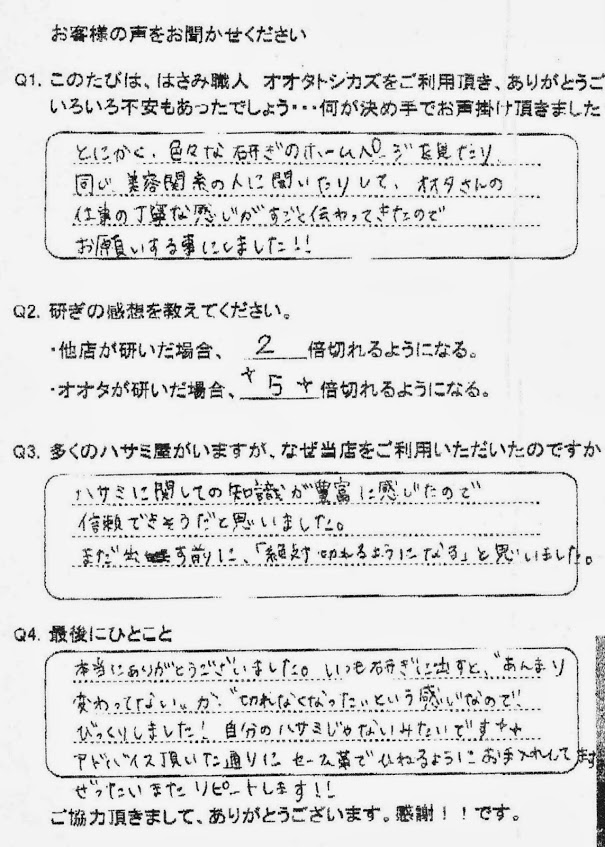 お客様の声をお聞かせください
Q1. このたびは、はさみ職人 オオタトシカズをご利用頂き、ありがとうご
いろいろ不安もあったでしょう・・・何が決め手でお声掛け頂きました
とにかく、色々な研ぎのホームページを見たり
同じ美容関系の人に聞いたりして、オオタさんの
仕事の丁寧な感じがすごく伝わってきたので
お願いする事にしました!!
Q2. 研ぎの感想を教えてください。
・他店が研いだ場合、 2 倍切れるようになる。
・オオタが研いだ場合、 5 倍切れるようになる。
Q3. 多くのハサミ屋がいますが、なぜ当店をご利用いただいたのですか
ハサミに関しての知識が豊富に感じたので
信頼できそうだと思いました。
まだ出す前に、「絶対切れるようになる」と思いました。
Q4. 最後にひとこと
本当にありがとうございました。いつも研ぎに出すと、"あんまり
変わってない〟か、"切れなくなった〟という感じなので、
びっくりしました! 自分のハサミじゃないみたいです
アドバイス頂いた通りに セーム革で ひねるように お手入れしてます
ぜったいまたリピートします!!
ご協力頂きまして、ありがとうございます。感謝!!です。